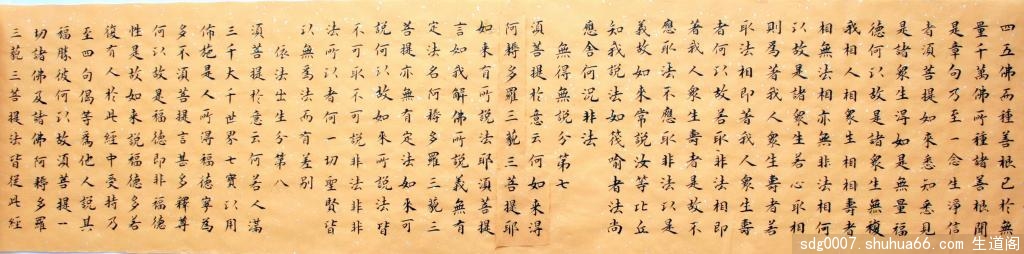 四五佛而種善根已於無
量千萬佛所種諸善根聞
是章句乃至一念生淨信
者須菩提如來悉知悉見
是諸眾生得如是無量福
德何以故是諸眾生無復
我相人相眾生相壽者
相無法相亦無非法相何
以故是諸眾生若心取相
則為著我人眾生壽者若
取法相即著我人眾生壽
者何以故若取非法相即
著我人眾生壽者是故不
應取法不應取非法以是
義故如來常說汝等比丘
知我說法如筏喻者法尚
應舍何況非法
無得無說分第七
須菩提於意云何如來得
阿耨多羅三藐三菩提耶
如來有所說法耶須菩提
言如我解佛所說義無有
定法名阿耨多羅三藐三
菩提亦無有定法如來可
說何以故如來所說法皆
不可取不可說非法非非
法所以者何一切賢聖皆
以無為法而有差別
依法出生分第八
須菩提於意云何若人滿
三千大千世界七寶以用
佈施是人所得福德寧為
多不須菩提言甚多釋尊
何以故是福德即非福德
性是故如來說福德多若
復有人於此經中受持乃
至四句偈等為他人說其
福勝彼何以故須菩提一
切諸佛及諸佛阿耨多羅
三藐三菩提法皆從此經
sdg0007.shuhua66.com 生道阁